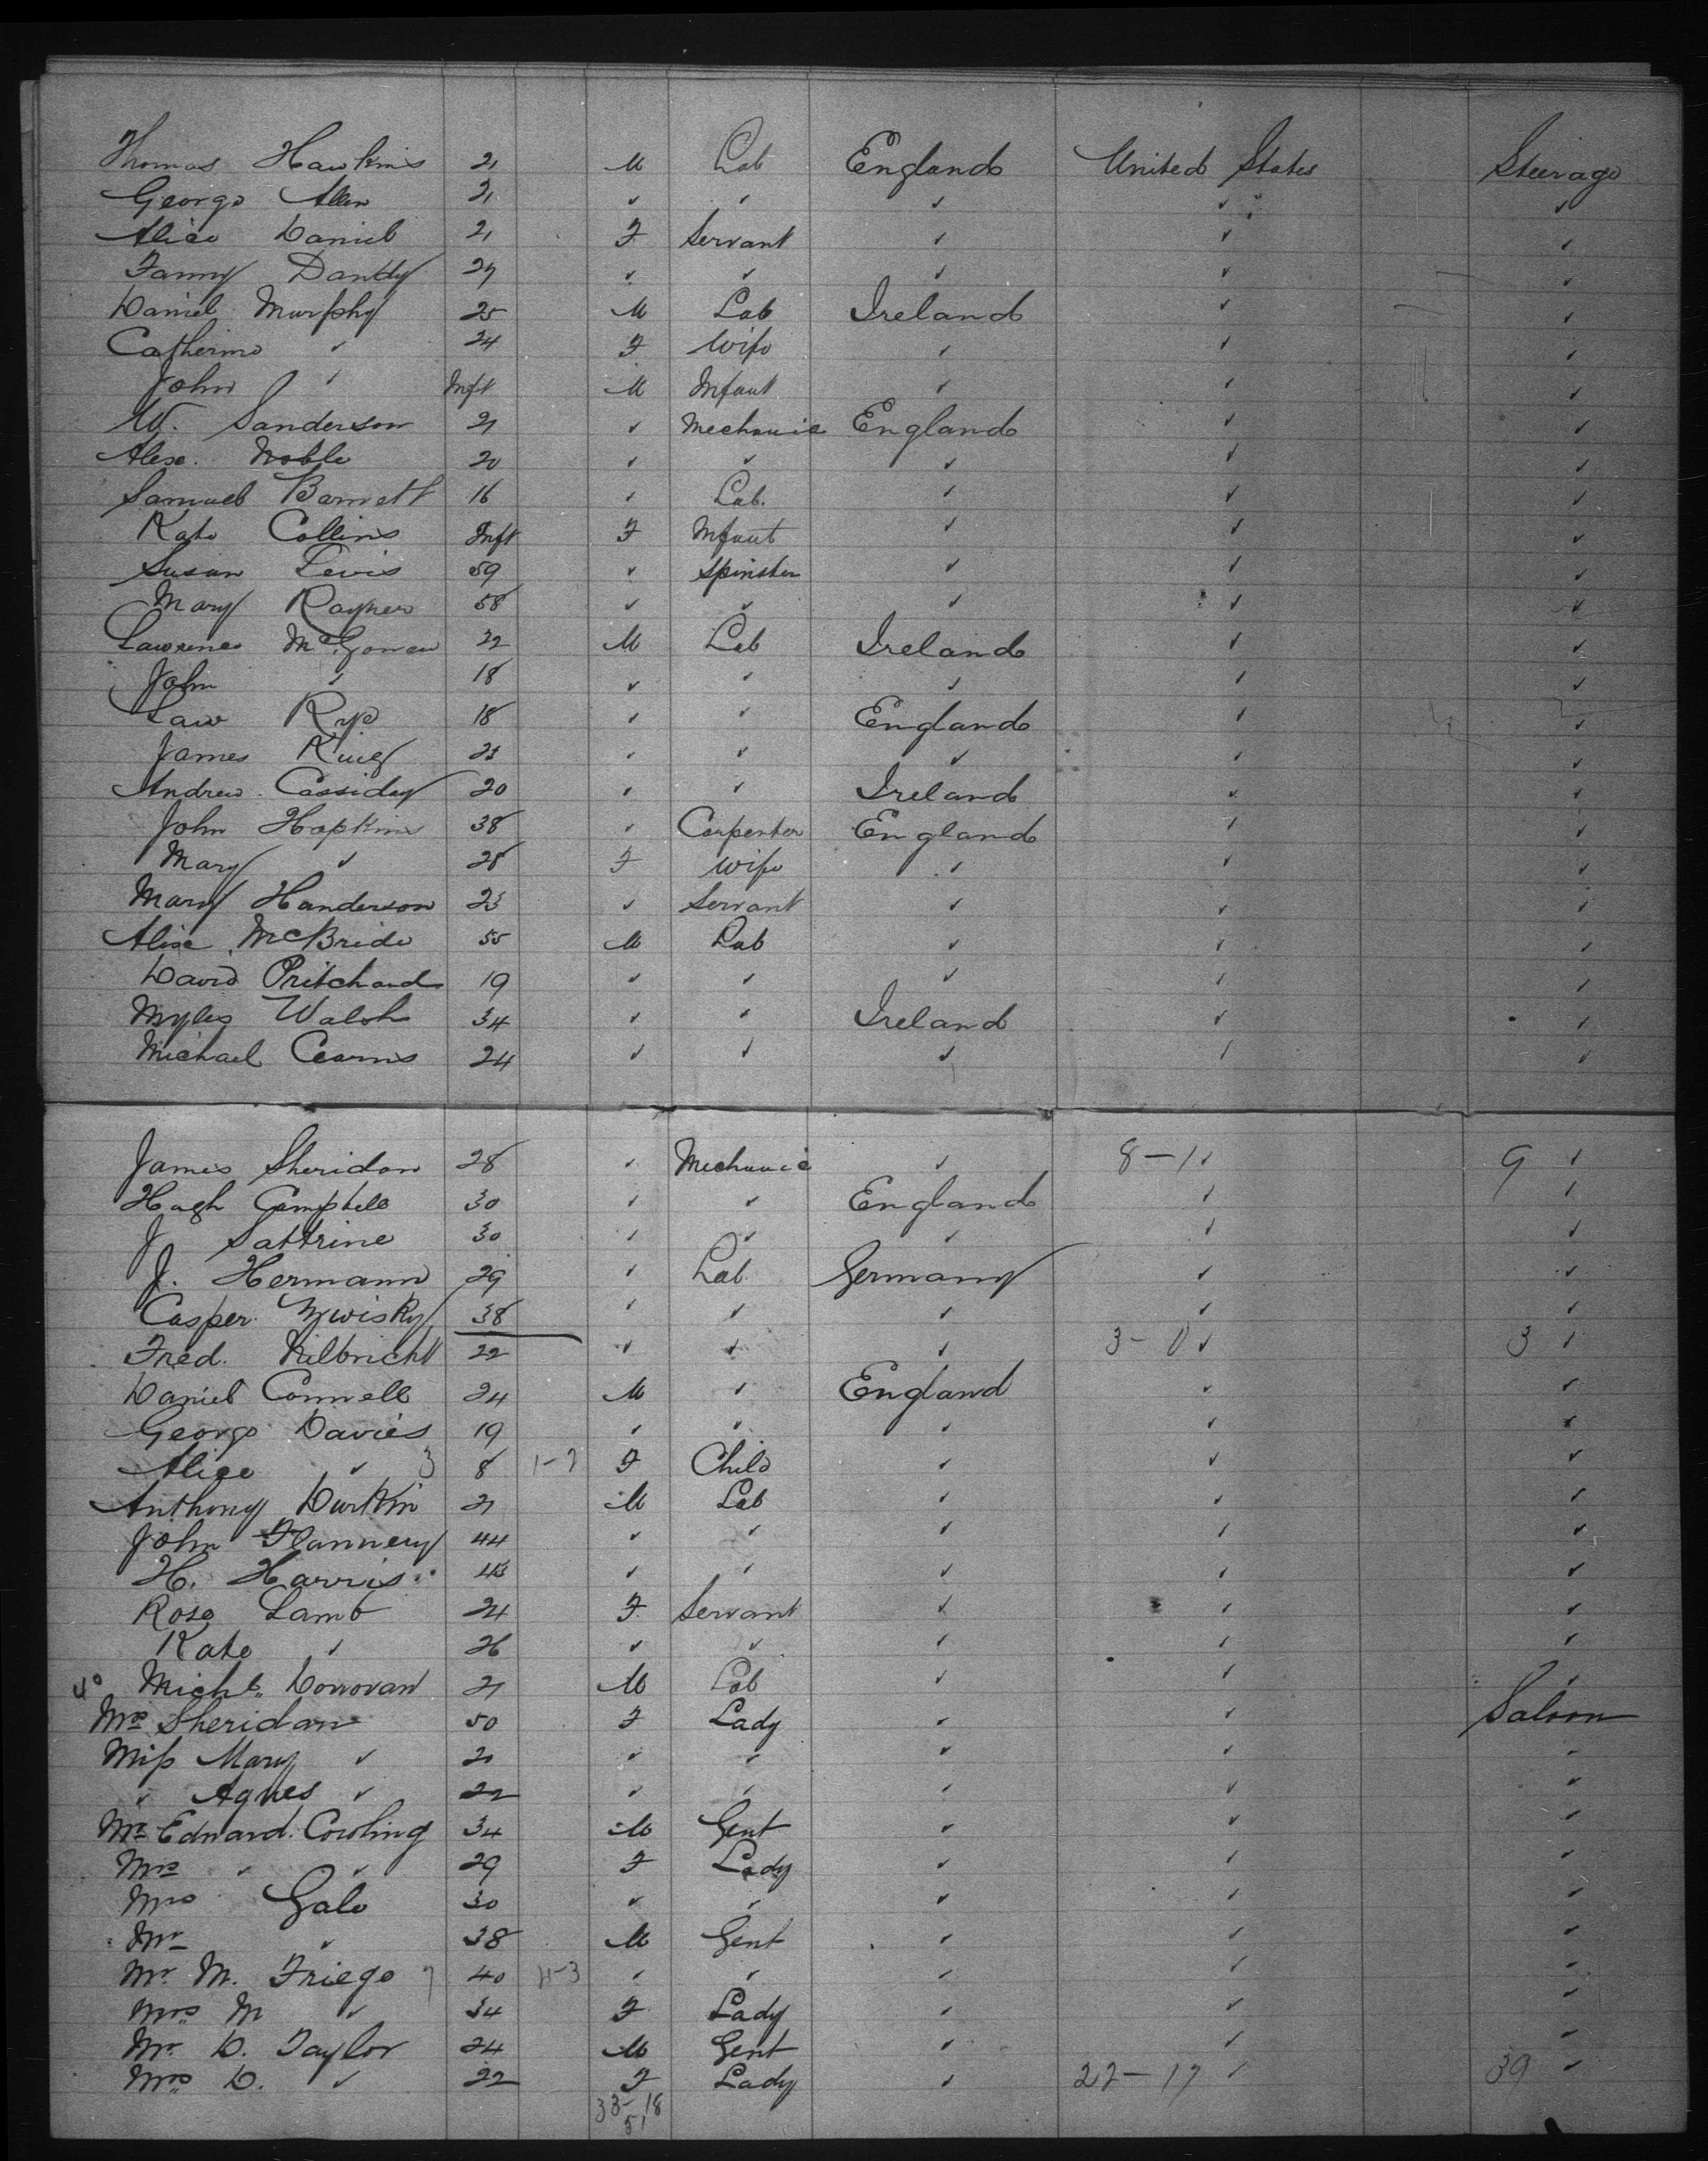 Thomas Hawkins 21 M Lab England United States Steerage
George Allen 21 ✓ ✓ ✓ ✓ ✓
Alice Daniel 21 F Servant ✓ ✓ ✓
Fanny Dandy 27 ✓ ✓ ✓ ✓ ✓
Daniel Murphy 25 M Lab Ireland ✓ ✓
Catherine ✓ 24 F Wife ✓ ✓ ✓
John ✓ Inft M Infant ✓ ✓ ✓
W. Sanderson 21 ✓ Mechanic England ✓ ✓
Alex. Noble 20 ✓ ✓ ✓ ✓ ✓
Samuel Barnett 16 ✓ Lab. ✓ ✓ ✓
Kate Collins Inft F Infant ✓ ✓ ✓
Susan Lewis 59 ✓ Spinster ✓ ✓ ✓
Mary Rayner 58 ✓ ✓ ✓ ✓ ✓
Lawrence McGowen 22 M Lab Ireland ✓ ✓
John ✓ 18 ✓ ✓ ✓ ✓ ✓
Law Rye 18 ✓ ✓ England ✓ ✓
James King 23 ✓ ✓ ✓ ✓ ✓
Andrew Cassiday 20 ✓ ✓ Ireland ✓ ✓
John Hopkins 38 ✓ Carpenter England ✓ ✓
Mary ✓ 28 F Wife ✓ ✓ ✓
Mary Handerson 23 ✓ Servant ✓ ✓ ✓
Alex McBride 55 M Lab ✓ ✓ ✓
David Pritchard 19 ✓ ✓ ✓ ✓ ✓
Myles Walsh 34 ✓ ✓ Ireland ✓ ✓
Michael Cearns 24 ✓ ✓ ✓ ✓ ✓
James Sheridan 28 ✓ Mechanic ✓ 8-1 ✓ 9 ✓
Hugh Campbell 30 ✓ ✓ England ✓ ✓
J Sattrine 30 ✓ ✓ ✓ ✓ ✓
J. Hermann 29 ✓ Lab Germany ✓ ✓
Casper 38 ✓ ✓ ✓ ✓ ✓
Fred. 22 ✓ ✓ ✓ 3-0 ✓ 3 ✓
Daniel Connell 24 M ✓ England ✓ ✓
George Davies 19 ✓ ✓ ✓ ✓ ✓
Alice ✓ 3 8 1-2 F Child ✓ ✓ ✓
Anthony Durkin 21 M Lab ✓ ✓ ✓
John Flannery 44 ✓ ✓ ✓ ✓ ✓
H. Harris 43 ✓ ✓ ✓ ✓ ✓
Rose Lamb 24 F Servant ✓ ✓ ✓
Kate ✓ 26 ✓ ✓ ✓ ✓ ✓
Michl. Donovan 21 M Lab ✓ ✓ ✓
Mrs Sheridan 50 F Lady ✓ ✓ Saloon
Miss Mary ✓ 20 ✓ ✓ ✓ ✓ ✓
✓ Agnes ✓ 22 ✓ ✓ ✓ ✓ ✓
Mr Edward Cowling 34 M Gent ✓ ✓ ✓
Mrs ✓ ✓ 29 F Lady ✓ ✓ ✓
Mrs Gale 30 ✓ ✓ ✓ ✓ ✓
Mr ✓ 38 M Gent ✓ ✓ ✓
Mr M. Friege 7 40 4-3 ✓ ✓ ✓ ✓ ✓
Mrs M ✓ 34 F Lady ✓ ✓ ✓
Mr D. Taylor 24 M Gent ✓ ✓ ✓
Mrs D. ✓ 22 F Lady ✓ 22-17 ✓ 39 ✓
33-18
51